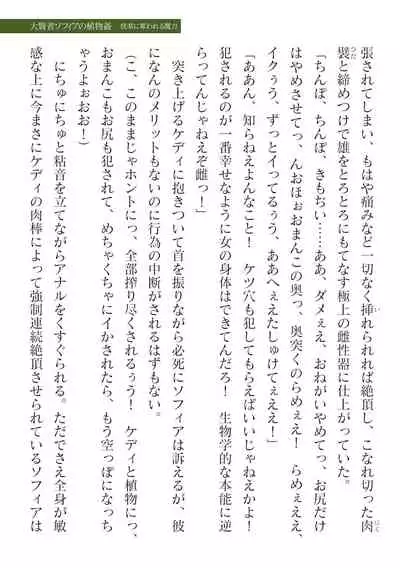 大賢者ソフィアの植物姦　快楽に奪われる魔力
張されてしまい、もはや痛みなど一切なく挿れられれば絶頂し、こなれ切った肉
襞と締めつけで雄をとろとろにもてなす極上の雌性器に仕上がっていた。
「ちんぽ、ちんぽ、きもぢい……ああ、ダメぇえ、おねがいやめてっ、お尻だけ
はやめさせてっ、んおほぉおまんこの奥っ、奥突くのらめぇえ！　らめぇええ、
イクぅう、ずっとイってるぅう、ああへぇえたしゅけてぇええ！」
「ああん、知らねえよんなこと！　ケツ穴も犯してもらえばいいじゃねえかよ！
犯されるのが一番幸せなように女の身体はできてんだろ！　生物学的な本能に逆
らってんじゃねえぞ雌っ！」
突き上げるケディに抱きついて首を振りながら必死にソフィアは訴えるが、彼
になんのメリットもないのに行為の中断がされるはずもない。
（こ、このままじゃホントにっ、全部搾り尽くされるぅう！　ケディと植物にっ、
おまんこもお尻も犯されて、めちゃくちゃにイかされたら、もう空っぽになっち
ゃうよぉおお！）
にちゅにちゅと粘音を立てながらアナルをくすぐられる。ただでさえ全身が敏
感な上に今まさにケディの肉棒によって強制連続絶頂させられているソフィアは